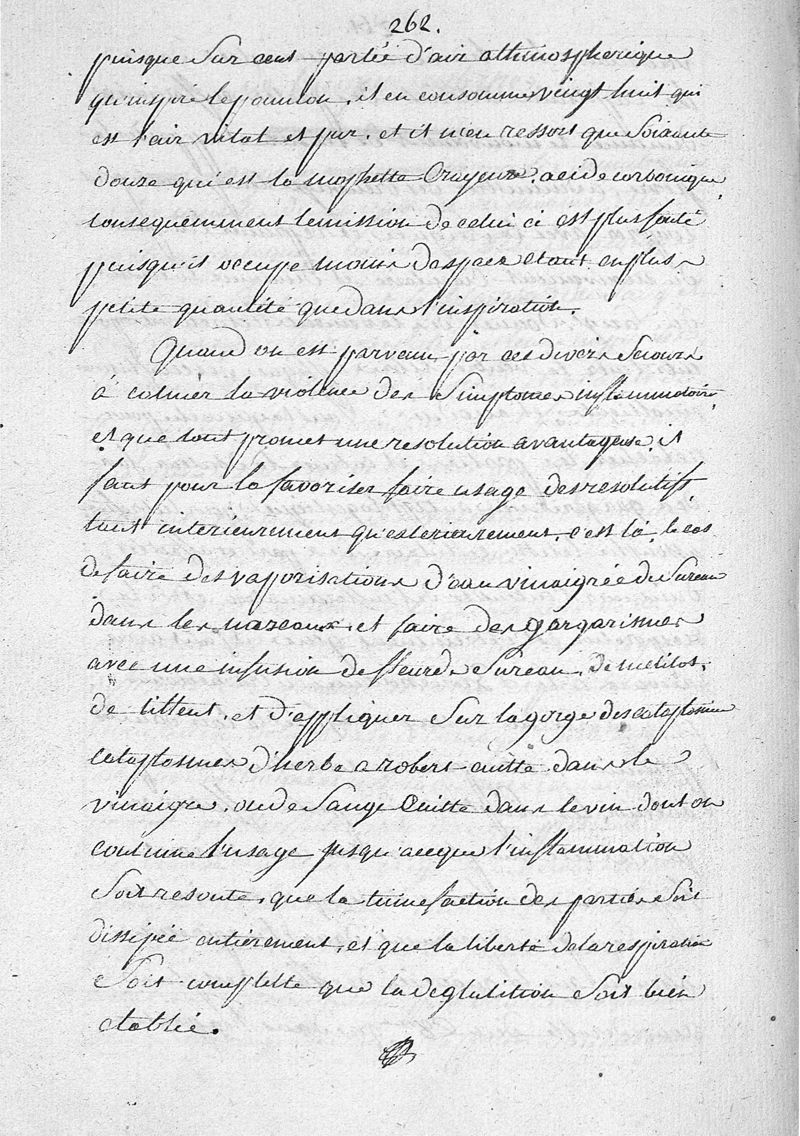 262.
puisque sur cent partée d'air athmospherique
qu'inspire le poumon, il en consomme vingt huit qui
est l'air vital et pur, et il n'en ressort que soixante
douze qui est la mophette Crayeuse acide carbonique
consequemment lemission de celui ci est plus
puisqu'il occupe moins despace etant en plus
petite quantité que dans l'inspiration.
Quand on est parvenu par ces divers secours
à calmer la violence des simptomes inflammatoire
et que tout promet une resolution avantageuse il
faut pour la favoriser faire usage des resolutifs
tant interieurement qu'exterieurement, c'est là le cas
de faire des vaporisations d'eau vinaigrée de sureau
dans les nazeaux, et faire des gargarismes
avec une infusion de fleur de sureau, de melilot,
de tilleul, et d'appliquer sur la gorge des cataplasme
cataplasmes d'herbe a robert cuitte dans le
vinaigre, ou de sauge cuitte dans le vin dont on
continue l'usage jusqu'acceque l'inflammation
soit resoute, que la tumefaction des parties soit
dissipée entièrement, et que la liberté de la respiration
soit complette que la deglutition soit bien
etablie.